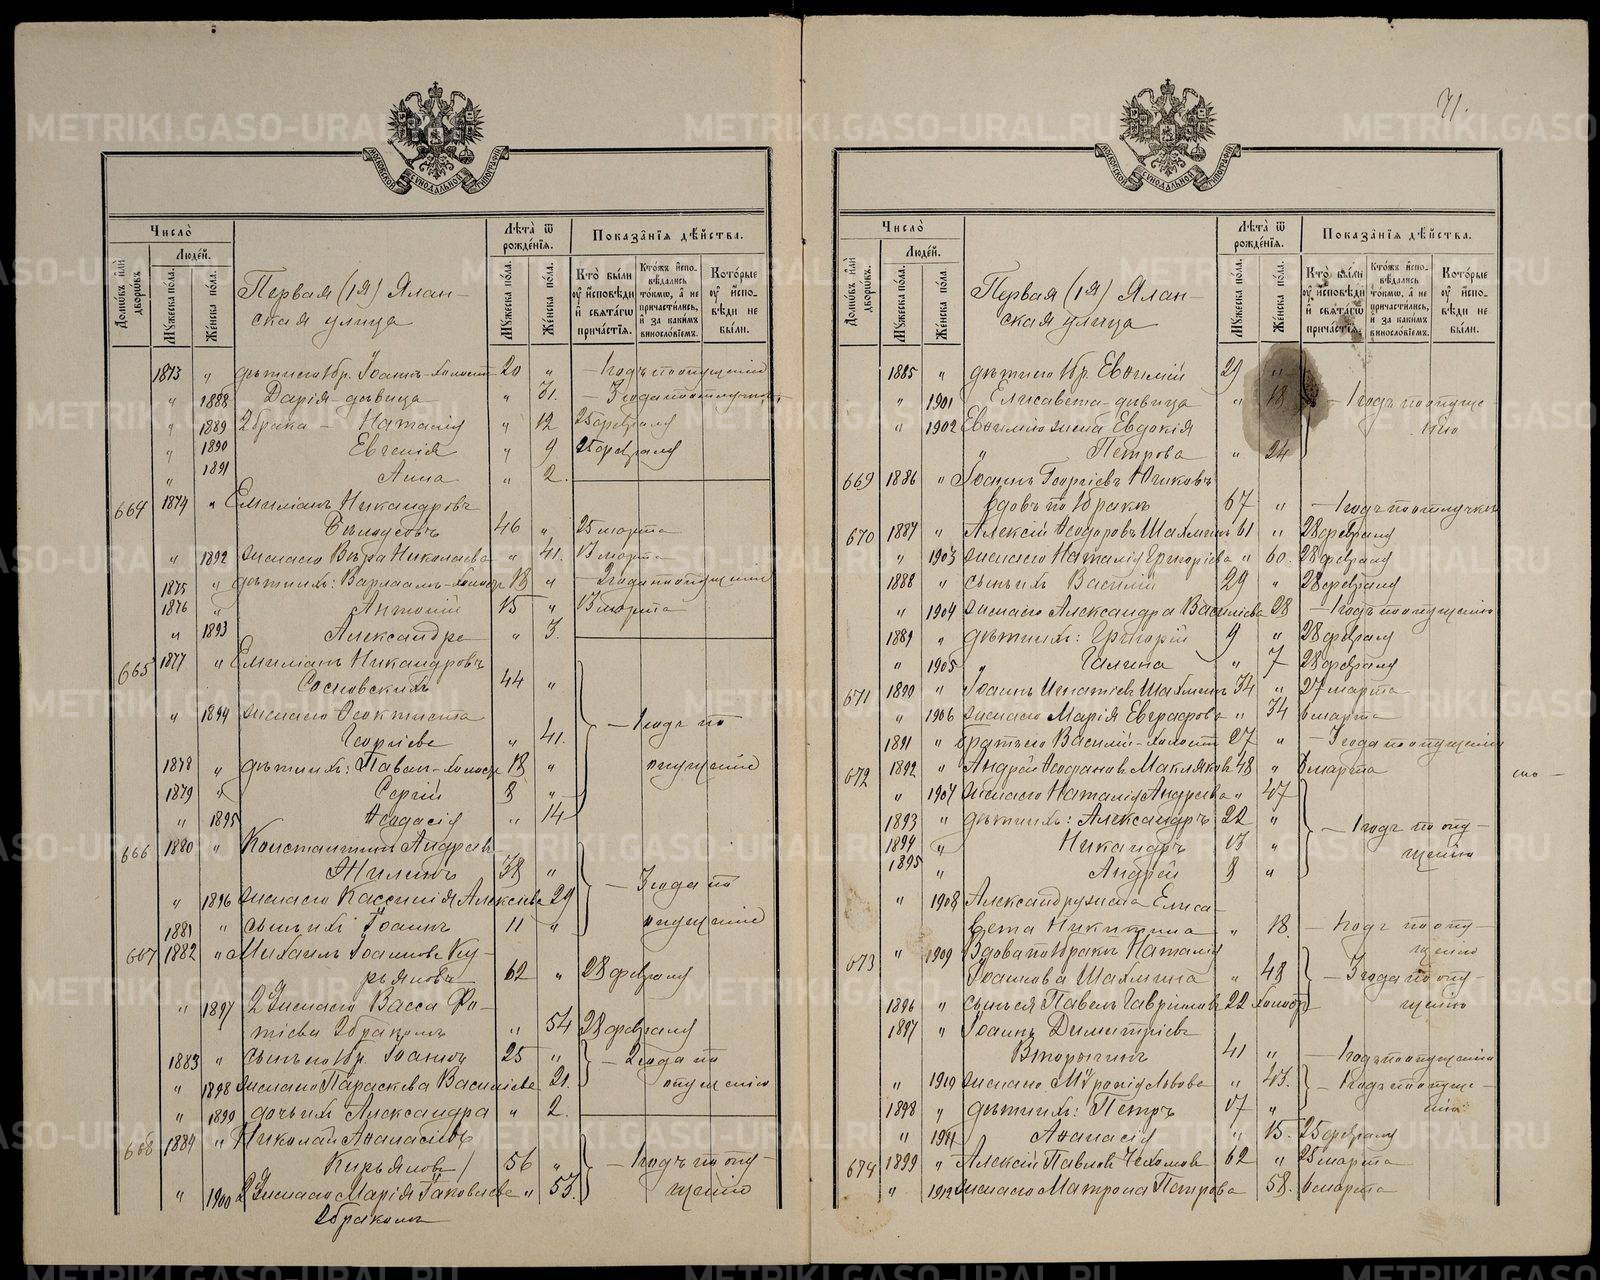 71.
МОСКОВСКОЙ СѴНОДАЛЬНОЙ ТИПОГРАФІИ
Число̀
Людєй.
Домѡвъ илѝ дворѡвъ.
Мꙋжеска пола.
Женска пола.
Первая (1я) Ялан-
ская улица
Лѣта ѿ рождєнїѧ.
Мꙋжеска пола.
Женска пола.
Показанїѧ дѣйства.
Кто̀ были оу̓ исповѣди и свѧтагѡ причастїѧ.
Ктѡжъ исповѣдались токмѡ, а не причастились, и за какимъ винословїемъ.
Которые оу̓ исповѣди не были.
1873 „ дѣти его 1 бр. Іоаннъ-холостъ 20 „ - 1 годъ по опущенію
„ 1888 Дарія-дѣвица „ 31. - 3 года по отлучкѣ
„ 1889 2 брака - Наталія „ 12 25 февраля
„ 1890 Евгенія „ 9 25 февраля
„ 1891 Анна „ 2.
664 1874 „ Емиліанъ Никандровъ
46 „ 25 марта
„ 1892 жена его Вѣра Николаева „ 41. 13 марта
1875 „ дѣти ихъ: Варлаамъ-холостъ 18 „ - 2 года по опущенію
1876 „ Антоній 15 „ 13 марта
„ 1893 Александра „ 3.
665 1877 „ Емиліанъ Никандровъ
Сосновскихъ 44 „
„ 1894 жена его Ѳеоктиста
Георгіева „ 41. - 1 годъ по
1878 „ дѣти ихъ: Павелъ-холостъ 18 „ опущенію
1879 „ Сергій 8 „
„ 1895 Ѳеодосія „ 14
666 1880 „ Константинъ Андреевъ
Жилинъ 38 „ - 3 года по
„ 1896 жена его Кассинія Алексѣева 29
1881 „ сынъ ихъ Іоаннъ 11 „ опущенію
667 1882 „ Михаилъ Іоанновъ Ку-
рьяновъ 62 „ 28 февраля
„ 1897 2 жена его Васса Фо-
тіева 2 бракомъ „ 54 28 февраля
1883 „ сынъ его 1 бр. Іоаннъ 25 „ - 2 года по
„ 1898 жена его Параскева Василіева 21. опущенію
„ 1899 дочь ихъ Александра „ 2.
668 1884 „ Николай Аѳанасіевъ
Кирьяновъ 56 „ - 1 годъ по опу-
„ 1900 2 жена его Марія Іаковлева „ 53. щенію
2 бракомъ
Число̀
Людєй.
Домѡвъ илѝ дворѡвъ.
Мꙋжеска пола.
Женска пола.
Первая (1я) Ялан-
ская улица
Лѣта ѿ рождєнїѧ.
Мꙋжеска пола.
Женска пола.
Показанїѧ дѣйства.
Кто̀ были оу̓ исповѣди и свѧтагѡ причастїѧ.
Ктѡжъ исповѣдались токмѡ, а не причастились, и за какимъ винословїемъ.
Которые оу̓ исповѣди не были.
1885 „ дѣти его 1 бр. Евѳимій 29 „
„ 1901 Елисавета-дѣвица „ 18 - 1 годъ по опуще-
„ 1902 Евѳимію жена Евдокія нію
Петрова „ 24
669 1886 „ Іоаннъ Георгіевъ
вдовъ по 1 бракѣ 67 „ - 1 годъ по отлучкѣ
670 1887 „ Алексій Ѳеодоровъ Шахминъ 61 „ 28 февраля
„ 1903 жена его Наталія Григорьева „ 60. 28 февраля
1888 „ сынъ ихъ Василій 29 „ 28 февраля
„ 1904 жена его Александра Василіева 28 - 1 годъ по опущенію
1889 „ дѣти ихъ: Григорій 9 „ 28 февраля
„ 1905 „ Галина „ 7 28 февраля
671 1890 „ Іоаннъ Игнатіевъ Шахминъ 34 „ 27 марта
„ 1906 жена его Марія Евграфова „ 34 6 марта
1891 „ братъ его Василій-холостъ 27 „ - 3 года по опущенію
672 1892 „ Андрей Ѳеофановъ Макляковъ 48 „ 6 марта
„ 1907 жена его Наталія Андреева „ 47
1893 „ дѣти ихъ: Александръ 22 „ - 1 годъ по опу-
1894 „ Никандръ 13 „ щенію
1895 „ Андрей 8 „
„ 1908 Александру жена Елиса-
вета Никитина „ 18. - 1 годъ по опу-
щенію
673 „ 1909 Вдова по 1 бракѣ Наталія
Іоаннова Шахмина „ 48 - 3 года по опу-
1896 „ сынъ ея Павелъ Гавріиловъ 22 холостъ щенію
1897 „ Іоаннъ Димитріевъ
Вторыгинъ 41 „ - 1 годъ по опущенію
„ 1910 жена его Мѵропія Львова „ 43. - 1 годъ по опуще-
1898 „ дѣти ихъ: Петръ 17 „ нію
„ 1911 Аѳанасія „ 15. 25 февраля
674 1899 „ Алексій Павловъ Чехомовъ 62 „ 25 марта
„ 1912 жена его Матрона Петрова „ 58. 6 марта
METRIKI.GASO-URAL.RU